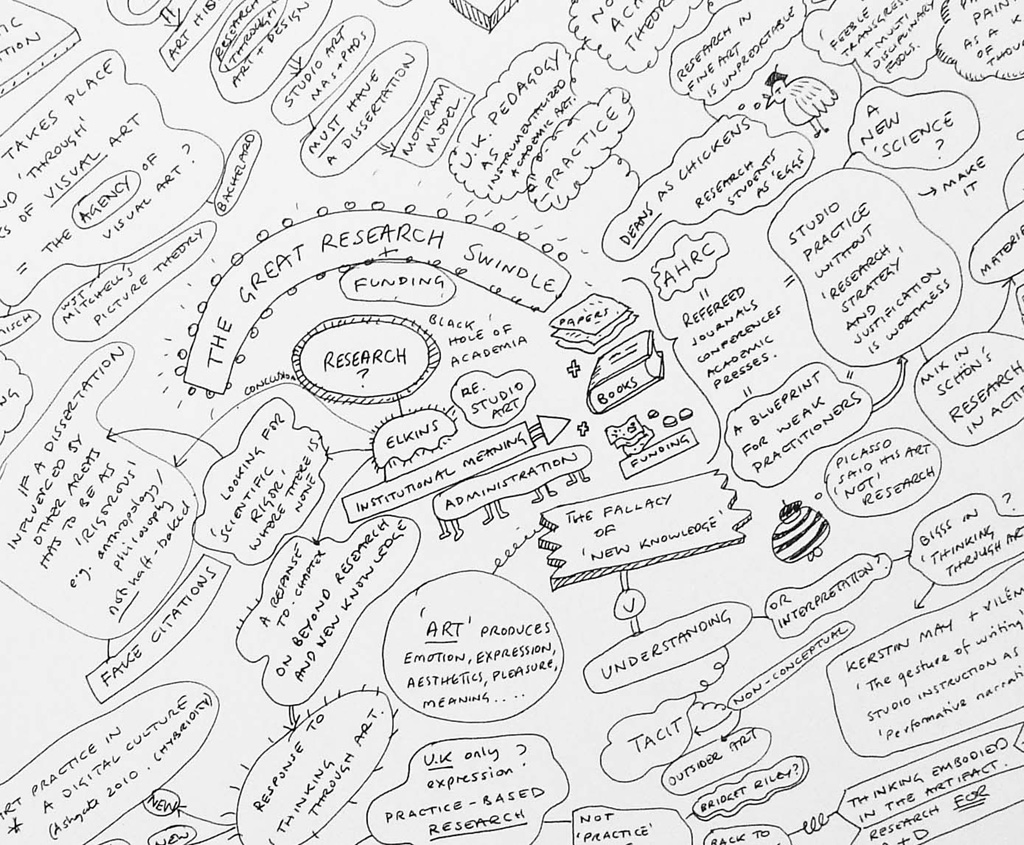 TAKES PLACE
'THROUGH'
OF VISUAL ART
= THE AGENCY OF
VISUAL ART?
BACHELARD
W.J.T
MITCHELL'S
PICTURE THEORY
ART
RESEARCH
THROUGH
ART DESIGN
STUDIO ART
MAs + PhDs
MUST HAVE
A DISSERTATION
MOTTRAM
MODEL.
U.K. PEDAGOGY
AS
INSTRUMENTALIZED
ACADEMIC ART.
PRACTICE
THEORY
RESEARCH IN
FINE ART
IS UNPREDICTABLE
'FEEBLE
TRANSGRESS
+ MULTI
DISCIPLINARY
AS A
OF
A
NEW
'SCIENCE'
?
→ MAKE
IT
DEANS AS CHICKENS
RESEARCH
STUDENTS
AS 'EGGS'
THE GREAT RESEARCH SWINDLE
+
FUNDING
RESEARCH
?
BLACK
HOLE OF
ACADEMIA
PAPERS
+
BOOKS
+
FUNDING
AHRC
=
REFEREED
JOURNALS
CONFERENCES
ACADEMIC
PRESSES.
=
A BLUEPRINT
FOR WEAK
PRACTITIONERS
=
STUDIO
PRACTICE
WITHOUT
'RESEARCH
STRATEGY'
AND
JUSTIFICATION
IS WORTHLESS
=
MIX IN
SCHÖN'S
RESEARCH
IN ACTI
RE.
STUDIO
ART
ELKINS
INSTITUTIONAL MEANING
ADMINISTRATION
CONCLUSION
LOOKING FOR
'SCIENTIFIC
RIGOR',
WHERE THERE IS
NONE
IF A DISSERTATION
INFLUENCED BY
OTHER AREAS
HAS TO BE AS
'RIGEROUS'
e.g. anthropology/
philosophy
not half-baked
FAKE CITATIONS
A REPONSE
TO CHAPTER
ON BEYOND RESEARCH
AND NEW KNOWLEDGE
RESPONSE TO
THINKING
THROUGH ART.
THE FALLACY
OF
'NEW KNOWLEDGE'
V
UNDERSTANDING
OR
INTERPRETATION?
PICASSO
SAID HIS ART
'NOT'
RESEARCH
BIGGS IN
'THINKING
THROUGH ART
?
'ART' PRODUCES
EMOTION, EXPRESSION,
AESTHETICS, PLEASURE,
MEANING....
NON-CONCEPTUAL
TACIT
OUTSIDER ART
BRIDGET RILEY?
KERSTIN MAY + VILÉM
'The gesture of writing'
STUDIO INSTRUCTION AS
'Performative narrati
U.K only
expression?
PRACTICE-BASED
RESEARCH
NOT
'PRACTICE'
BACK TO
THINKING EMBODIED
IN THE ARTIFACT.
RESEARCH FOR
ART PRACTICE IN
A DIGITAL CULTURE
* (Ashgate 2010. (HYBRIDITY)
NEW
NEW